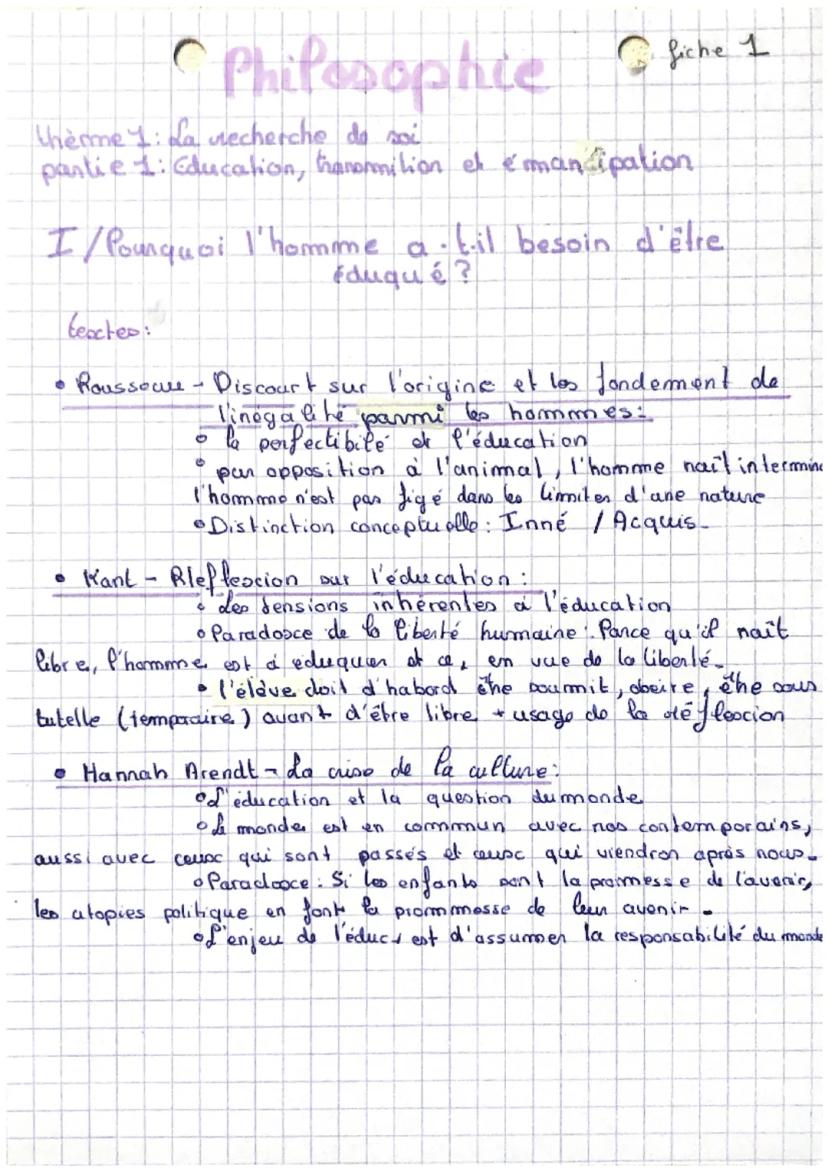 fiche 1
Philosophie
thème 1: La recherche de soi
partie 1: Education, transmition et émancipation
I/Pourquoi l'homme a-t-il besoin d'être
éduqué?
textes:
• Rousseau - Discourt sur l'origine et les fondement de
l'inégalité parmi les hommes:
• la perfectibilé et l'éducation
• par opposition à l'animal, l'homme naît intermine
l'homme n'est pas figé dans les limites d'une nature
• Distinction conceptuelle: Inné / Acquis.
• Kant - Rlefflexion sur l'éducation:
• Les tensions inhérentes à l'éducation
• Paradoxe de la liberté humaine: Parce qu'il naît
libre, l'homme est à éduquer et ce, en vue de la liberté.
• l'élève doit d'habord être soumit, obeire, être sous
tutelle (temporaire) avant d'être libre + usage de la réflexion
• Hannah Arendt - La crise de la culture:
• L'éducation et la question du monde
• Le monde est en commun avec nos contemporains,
aussi avec ceux qui sont passés et ceux qui viendron après nous.
• Paradoxe: Si les enfants sont la promesse de l'avenir,
les utopies politique en font la prommesse de leur avenir.
• L'enjeu de l'éduc, est d'assumer la responsabilité du monde